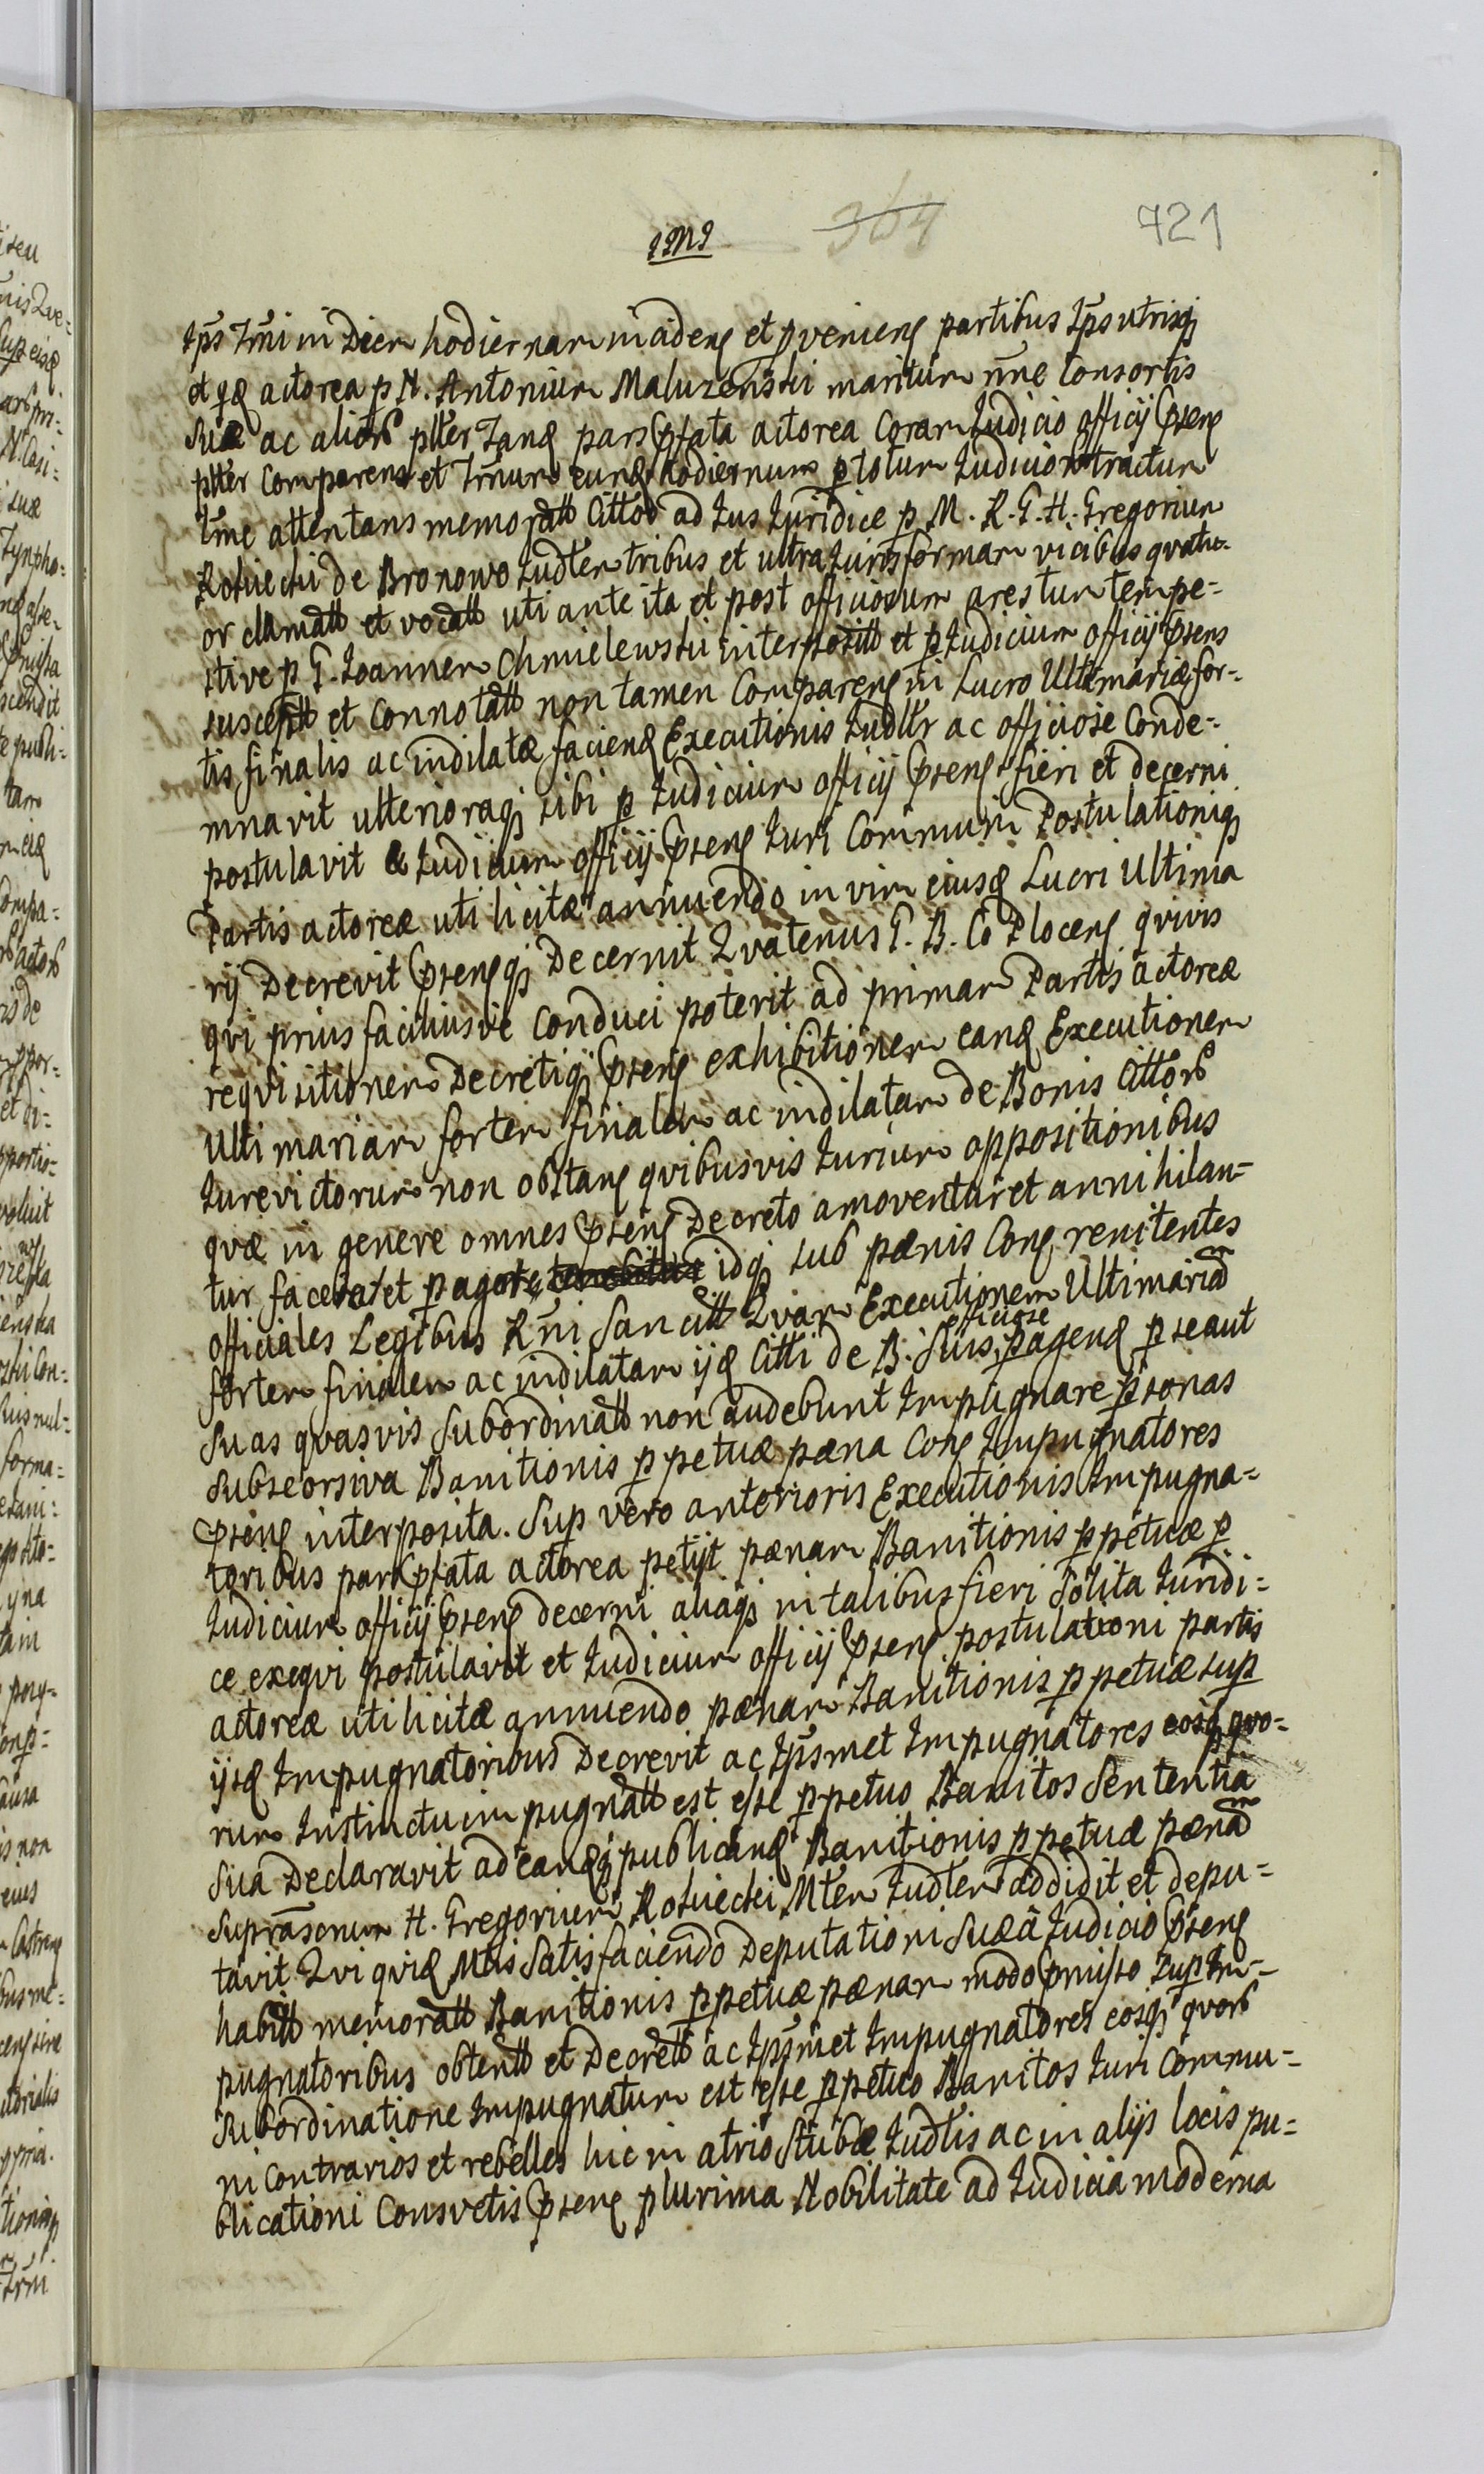 364 721
Ips Trmi in Diem hodiernam incidens et pveniens partibus Ips utrisq
et q actorea p N. Antonium Maluzenski maritum nne Consortis
Suæ ac aliors plter Tanq pars pfata actorea Coram Judicio officij psens
plter Comparens et Trmum eunq hodiernum p totum Judicior tractum
lme attentans memoratt Citto ad Jus Juridice p M. R. G. H. Gregorium
Kosuecki de Bronowo Judlem tribus et ultra Juris formam vicibus quatu-
or clamatt et vocatt uti ante ita et post officiosum arestum tempe-
stive p G. Joannem Chmielewski interpositt et p Judicium officij psens
susceptt et Connotatt non tamen Comparens in Lucro Ultimariæ for-
tis finalis ac indilatæ faciend Executionis Judllr ac officiose Conde-
mnavit ulterioraq sibi p Judicium officij psens fieri et decerni
postulavit & Judicium officij psens Juri Communi Postulationiq
Partis actoreæ uti licitæ annuendo in vim eiusq Lucri Ultima
rij Decrevit psensq Decernit Quatenus G. B. Co Plocens quivis
qui prius faciliusve Conduci poterit ad primam Partis actoreæ
requisitionem Decretiq psens exhibitionem eanq Executionem
Ultimariam fortem finalem ac indilatam de Bonis Cittors
Jurevictorum non obstans quibusvis Jurium oppositionibus
quæ in genere omnes psens Decreto amoventur et annihilan-
tur faciat et pagat idq sub pænis Cons renitentes
officiales Legibus Rni Sancitt Quam Executionem Ultimariam
fortem finalem ac indilatam ijq Citti de B. Suis officiose pagend p se aut
Suas quasvis Subordinatt non audebunt Impugnare psonas
Subseorsiva Banitionis ppetuæ pæna Cons Impugnatores
psens interposita. Sup vero anterioris Executionis Impugna-
toribus pars pfata actorea petijt pænam Banitionis ppetuæ p
Judicium officij psens decerni aliaq in talibus fieri Solita Juridi-
ce exequi postulavit et Judicium officij psens postulationi partis
actoreæ uti licitæ annuendo pænam Banitionis ppetuæ sup
ijsq Impugnatoribus Decrevit ac Ipsmet Impugnatores eosq quo-
rum Instinctu impugnatt est esse ppetuo Banitos Sententia
Sua Declaravit ad eanqq publicanq Banitionis ppetuæ pænam
Suprasonum H. Gregorium Kosuecki Mtem Judlem addidit et depu-
tavit Qui quiq Mtis Satisfaciendo Deputationi Suæ â Judicio psens
habitt memoratt Banitionis ppetuæ pænam modo pmisso Sup Im-
pugnatoribus obtentt et Decrett ac Ipsmet Impugnatores eosq quors
Subordinatione Impugnatum est esse ppetuo Banitos Juri Commu-
ni Contrarios et rebelles hic in atrio Stubæ Judlis ac in alijs locis pu-
blicationi Consvetis psens plurima Nobilitate ad Judicia moderna